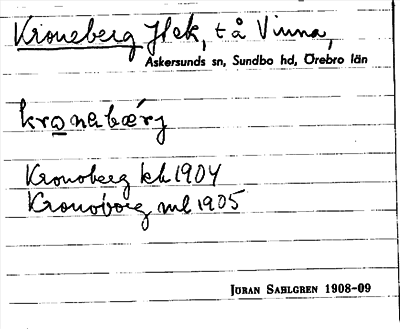 Kroneberg Hek, t å Vinna,
Askersunds sn, Sundbo hd, Örebro län
kronabærj
Kronoberg kh 1904
Kronoborg ml 1905
JÖRAN SAHLGREN 1908-09